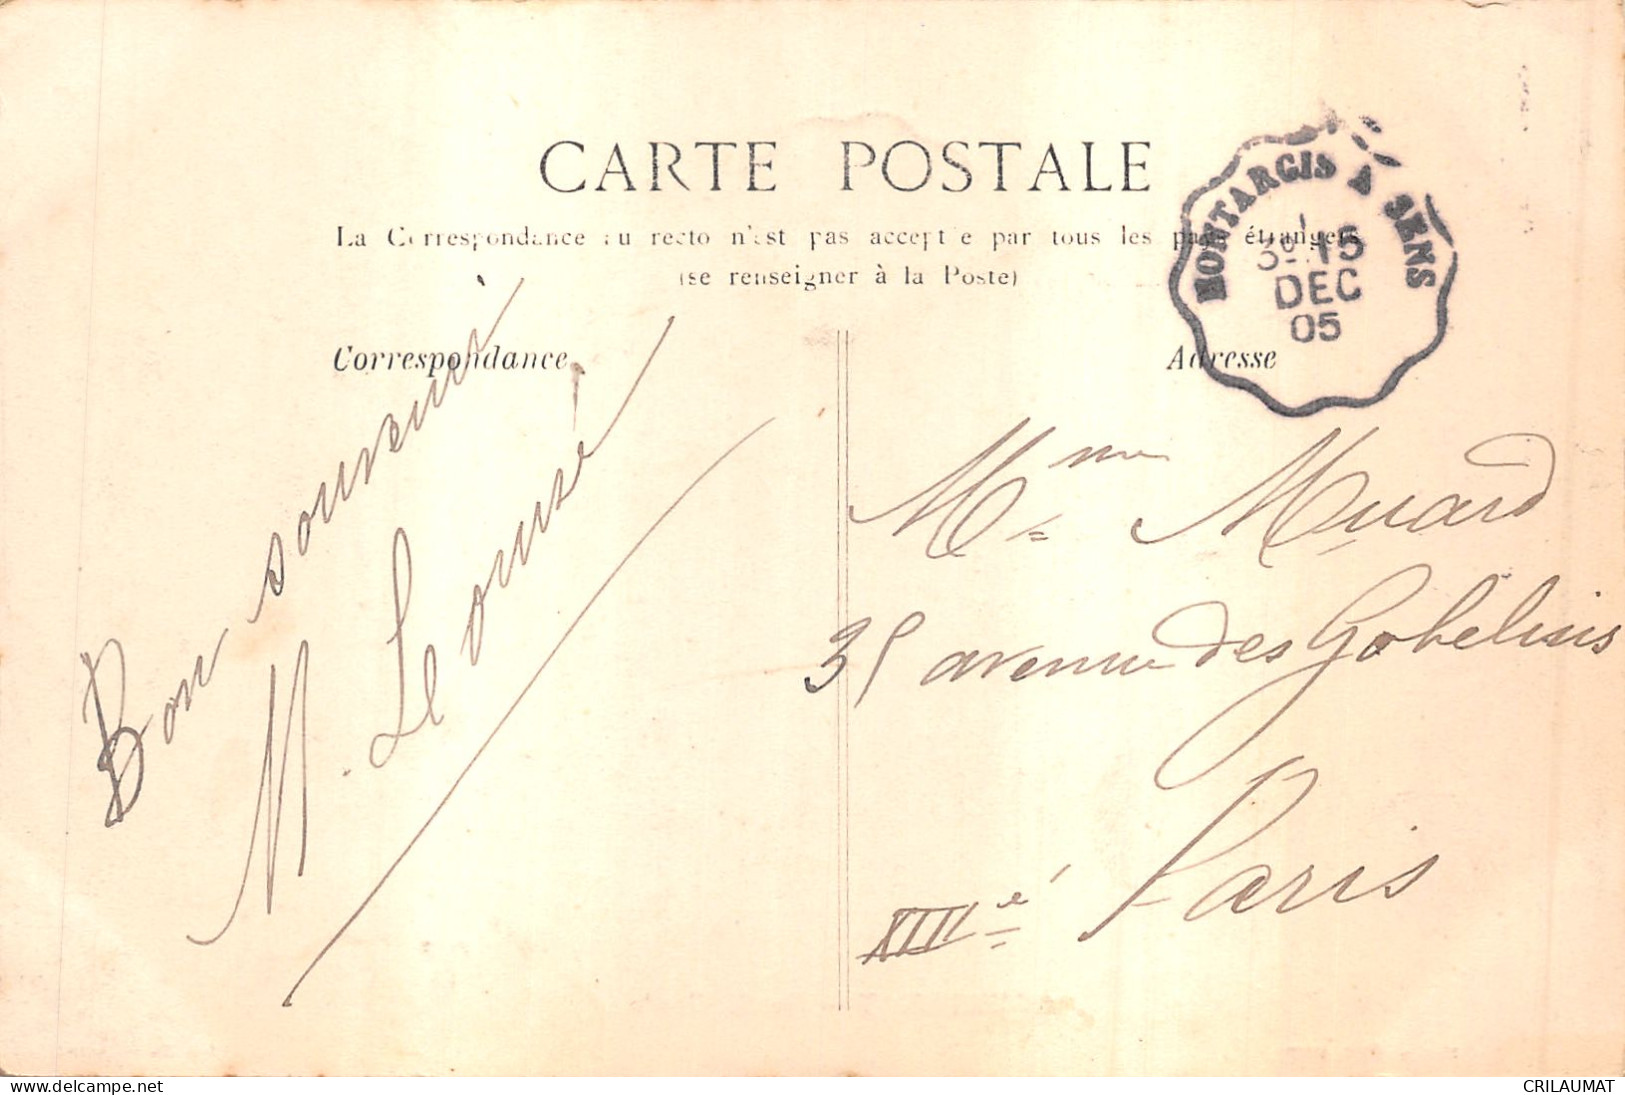 CARTE POSTALE
La Correspondance au recto n'est pas acceptée par tous les pays étrangers
(se renseigner à la Poste)
MONTARGIS A SENS
3º 15
DEC
05
Correspondance
Adresse
Bon souvenir
M. Le
Mme Muard
35 avenue des Gobelins
Paris
XIIIe
www.delcampe.net
CRILAUMAT